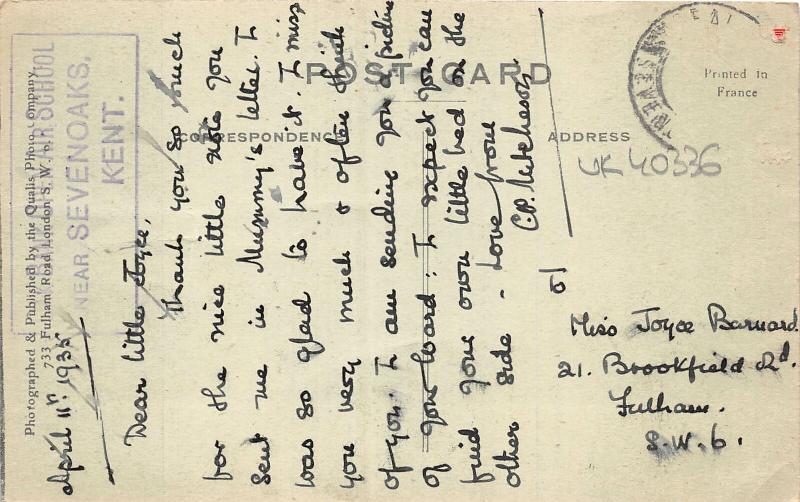 POST CARD
CORRESPONDENCE
ADDRESS
Printed in
France
Photographed & Published by the Qualis Photo Company,
733 Fulham Road, London, S. W. 6.
SCHOOL
NEAR SEVENOAKS,
KENT.
April 11th 1935
Dear little Joyce,
Thank you so much
for the nice little note you
sent me in Mummy's letter. I
was so glad to have it. I miss
you very much & often think
of you. I am sending you a picture
of your ward: I expect you can
find your own little bed on the
other side - Love from
C.P. Mitcheson
UK 40336
Miss Joyce Barnard
21. Brookfield Rd.
Fulham.
S.W.6.